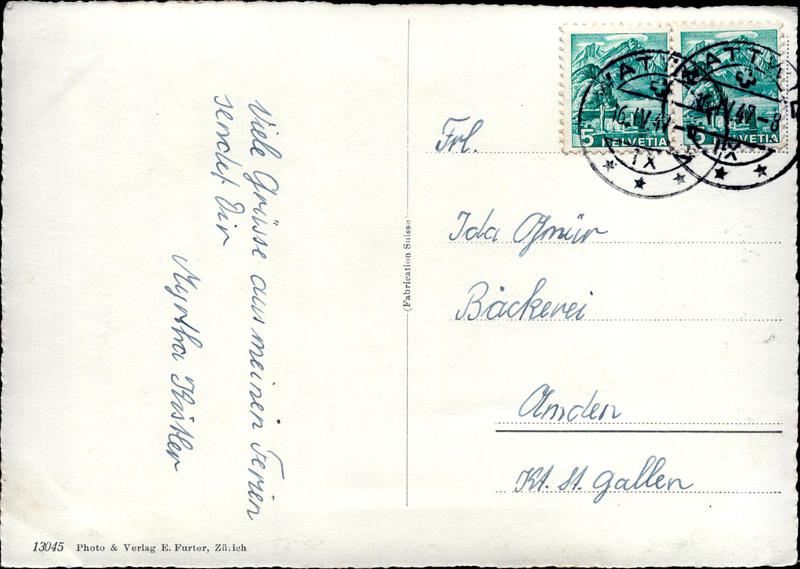 Viele Grüsse aus meinen Ferien
sendet Dir
Myrtha Kistler
13045 Photo & Verlag E. Furter, Zürich
(Fabrication Suisse)
5
HELVETIA
HELVETIA
WATTWIL
16. IV. 47 - 8
IX
WATTWIL
16. IV. 47 - 8
IX
Frl.
Ida Gmür
Bäckerei
Amden
Kt. St. Gallen